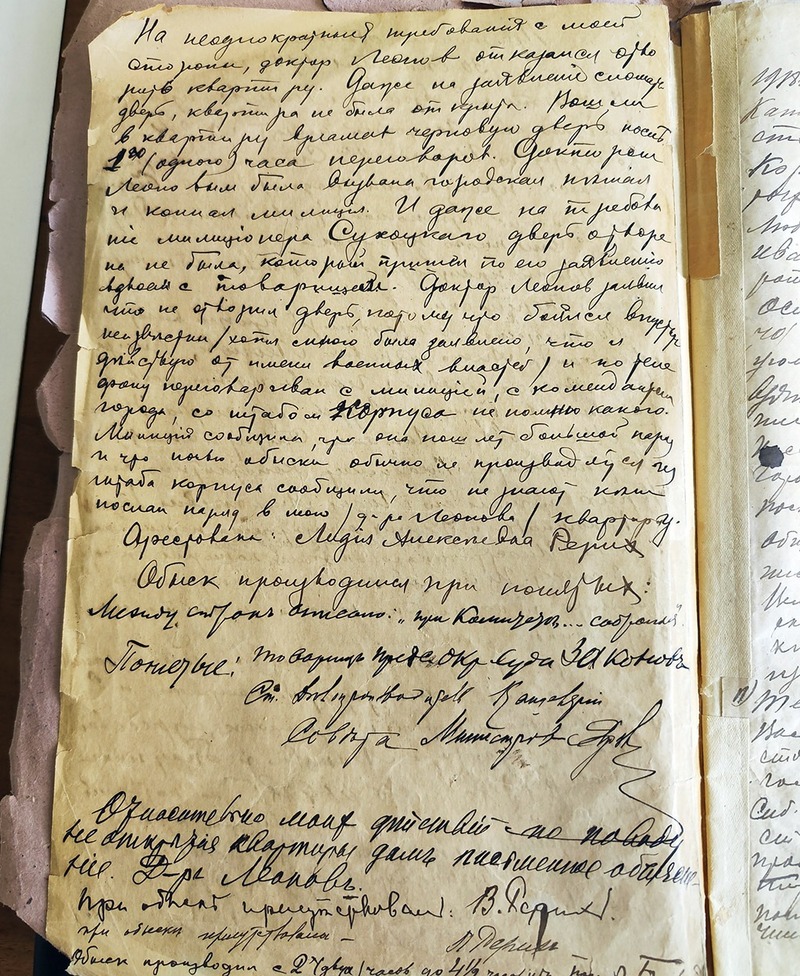 На неоднократныя требования с моей
стороны, доктор Леонов отказался отво
рить квартиру. Даже на заявление сломать
дверь, квартира не была открыта. Вошли
в квартиру взломав черновую дверь после
1 00 (одного) часа переговоров. Доктором
Леоновым была вызвана городская
и конная милиция. И даже на требова
ние милицiонера Сукоцкаго дверь отворе
на не была, который пришел по его заявлению
вдвоем с товарищем. Доктор Леонов заявил
что не отворил дверь, потому что боялся впустить
неизвестных /хотя мною было заявлено, что я
действую от имени военных властей/ и по теле
фону переговаривал с милицией, с комендантом
города, со штабом корпуса не помню какого.
Милиция сообщила, что она пошлет большой наряд
и что ночью обыски обычно не производятся из
штаба корпуса сообщили, что не знают кем
послан наряд в мою /д-ра Леонова/ квартиру.
Арестована: Лидия Алексеевна Рерих
Обыск производился при понятых:
Между строк вписано: "при
Понятые: товарищ пред. окр. суда Законов
Ст. Канцелярии
Совета Министров
Относительно моих действий по поводу
не открытия квартиры дам письменное объясне-
ние. Д-ръ Леоновъ.
При обыске присутствовал: В. Рерих.
при обыске присутствовала — Л. Рерих
Обыск производил с 2х /двух/ часов до 4½